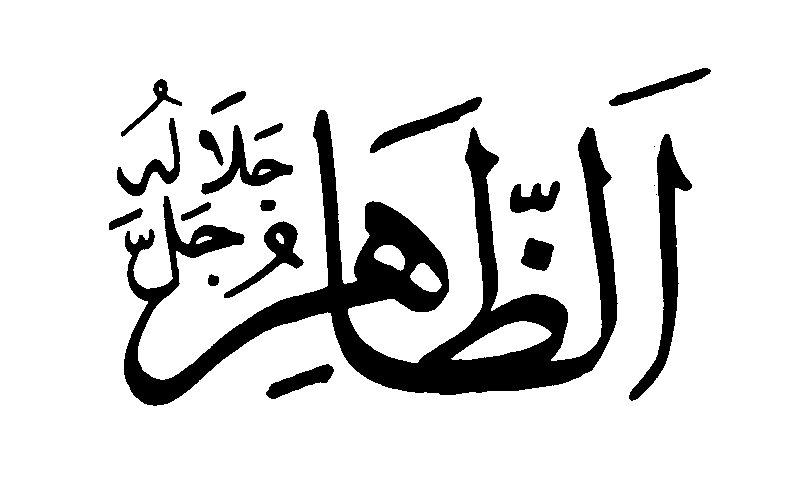 اَلظَّاهِر
جَلَّ جَلَالُهُ